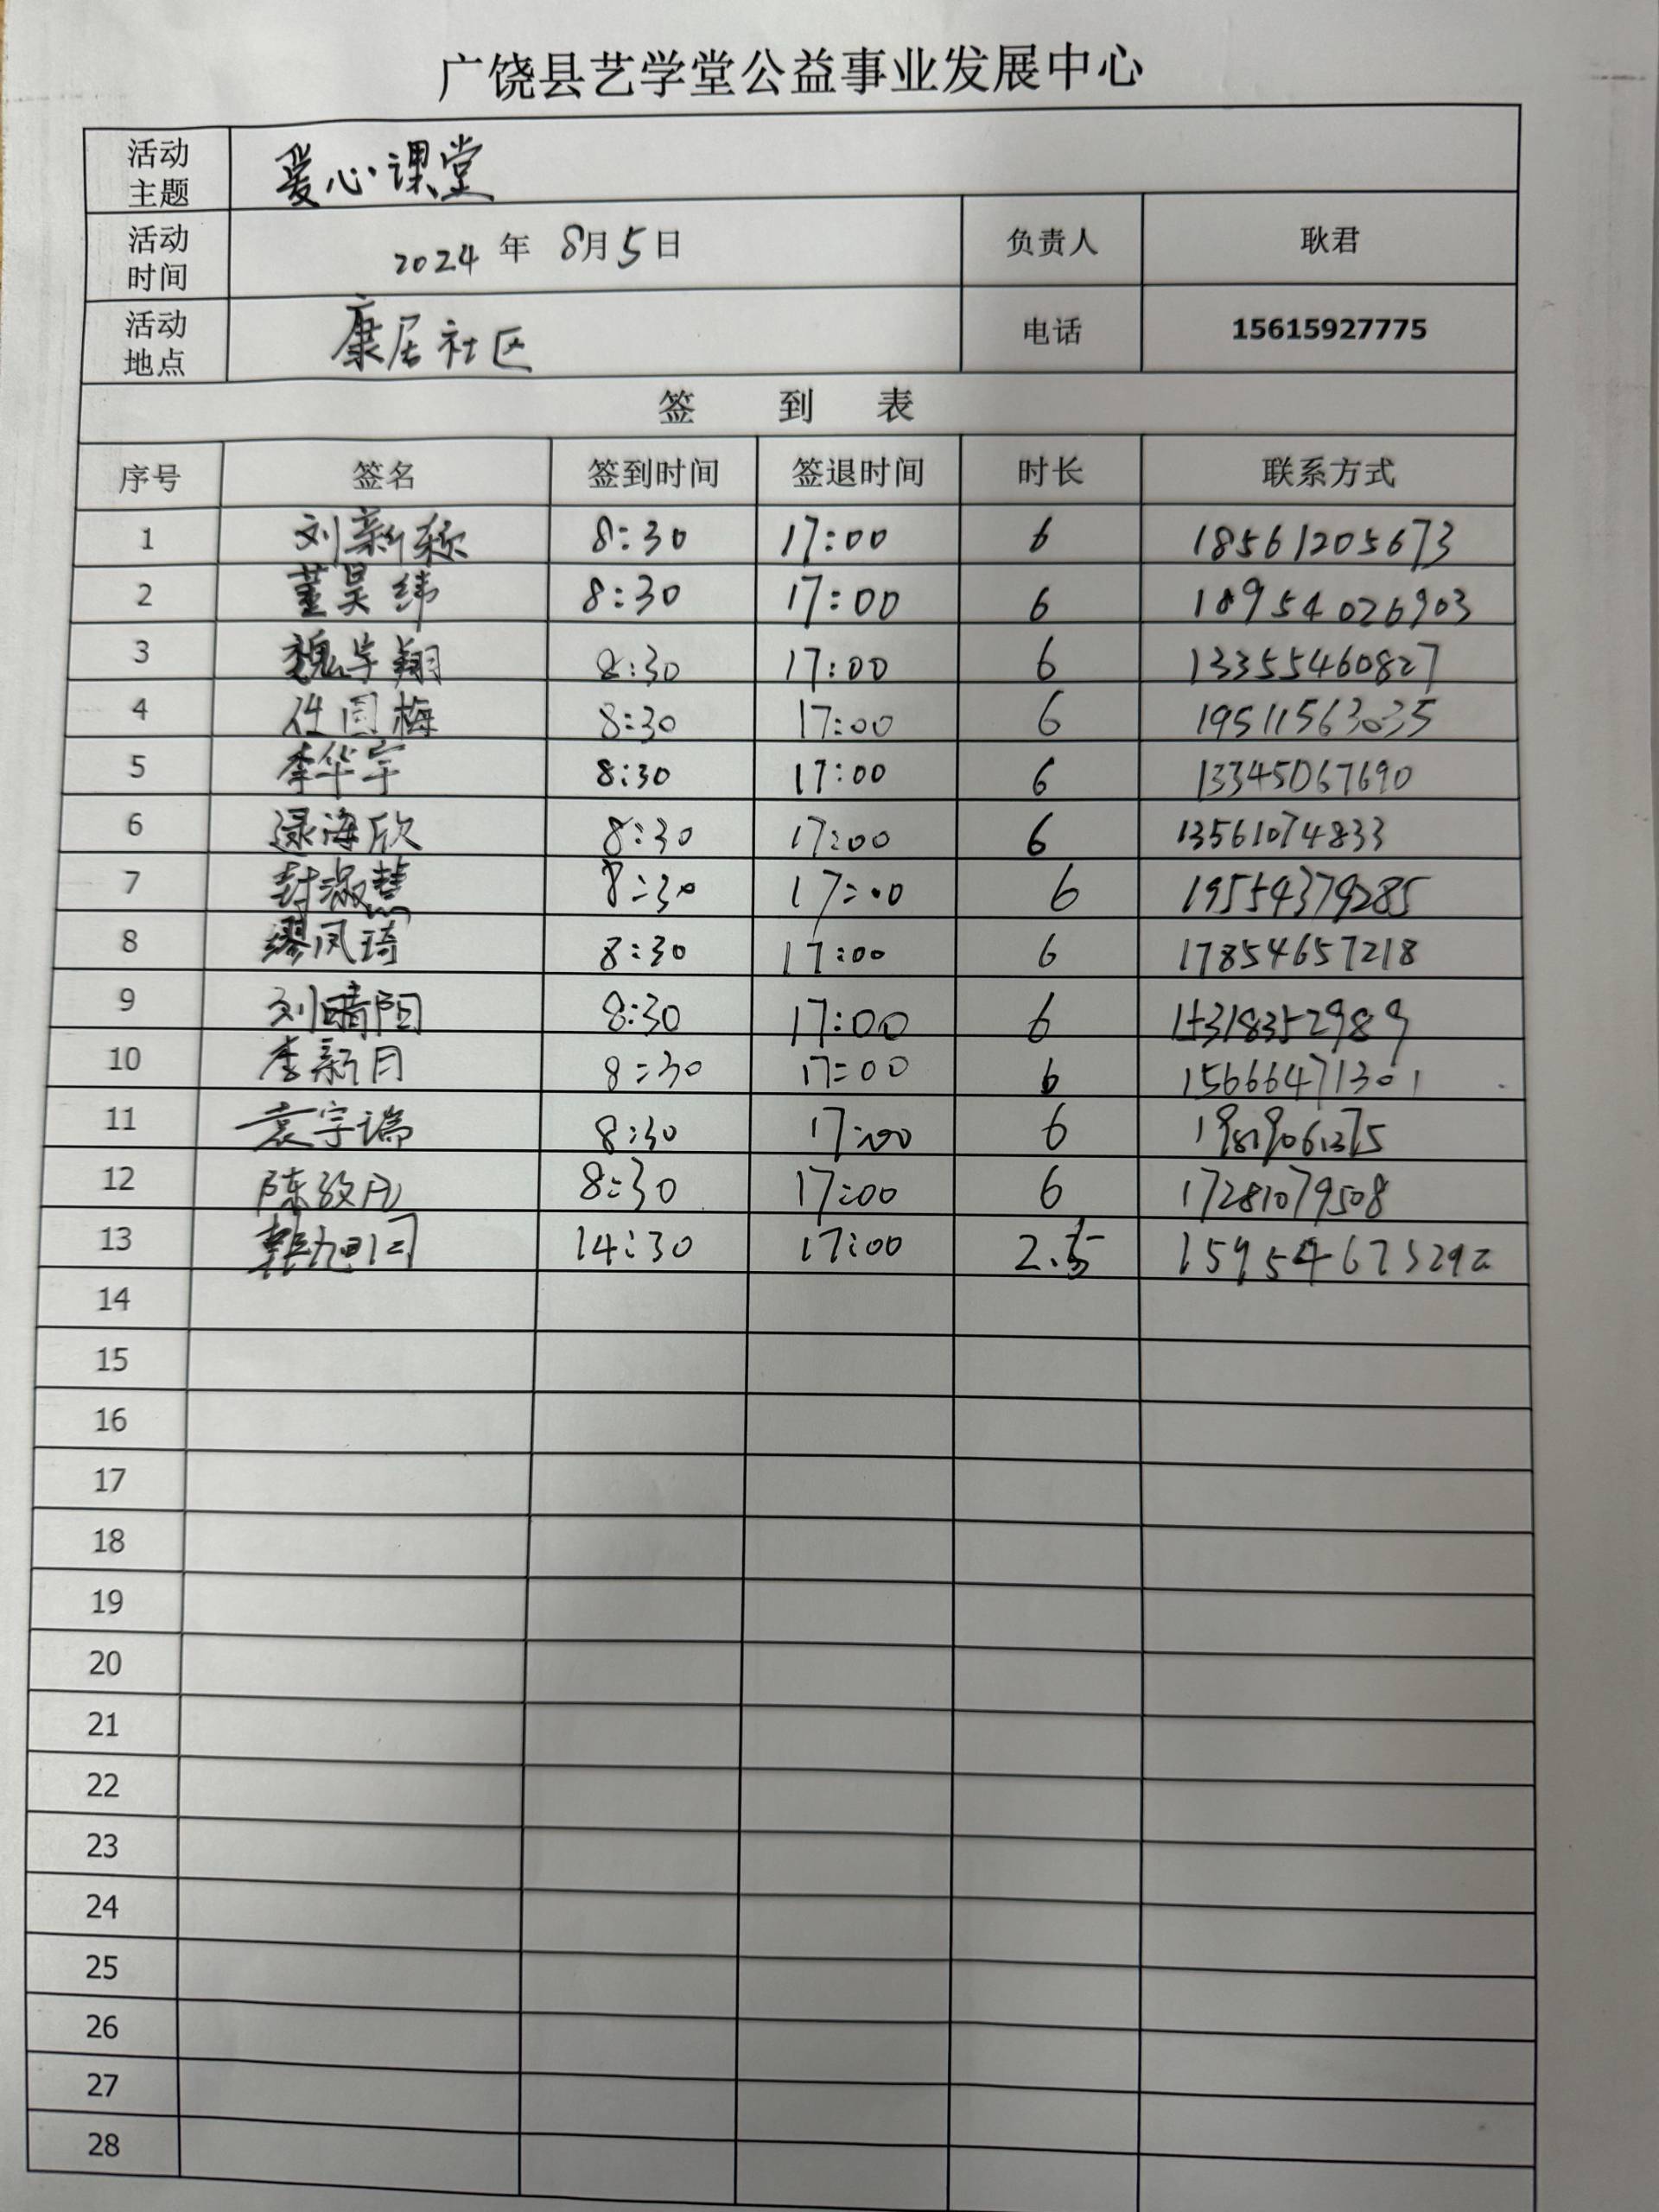 广饶县艺学堂公益事业发展中心
活动主题 爱心课堂
活动时间 2024 年 8月5日 负责人 耿君
活动地点 康居社区 电话 15615927775
签 到 表
序号 签名 签到时间 签退时间 时长 联系方式
1 刘新 8:30 17:00 6 18561205673
2 董昊纬 8:30 17:00 6 18954026903
3 魏宇翔 8:30 17:00 6 13355460827
4 任国梅 8:30 17:00 6 19511563035
5 李华宇 8:30 17:00 6 13345067690
6 逯海欣 8:30 17:00 6 13561074833
7 封淑慧 8:30 17:00 6 19554379285
8 缪凤琦 8:30 17:00 6 17854657218
9 刘晴阳 8:30 17:00 6
10 李新月 8:30 17:00 6 15666471301
11 袁宇瑞 8:30 17:00 6
12 陈 8:30 17:00 6 17281079508
13 14:30 17:00 2.5
14
15
16
17
18
19
20
21
22
23
24
25
26
27
28